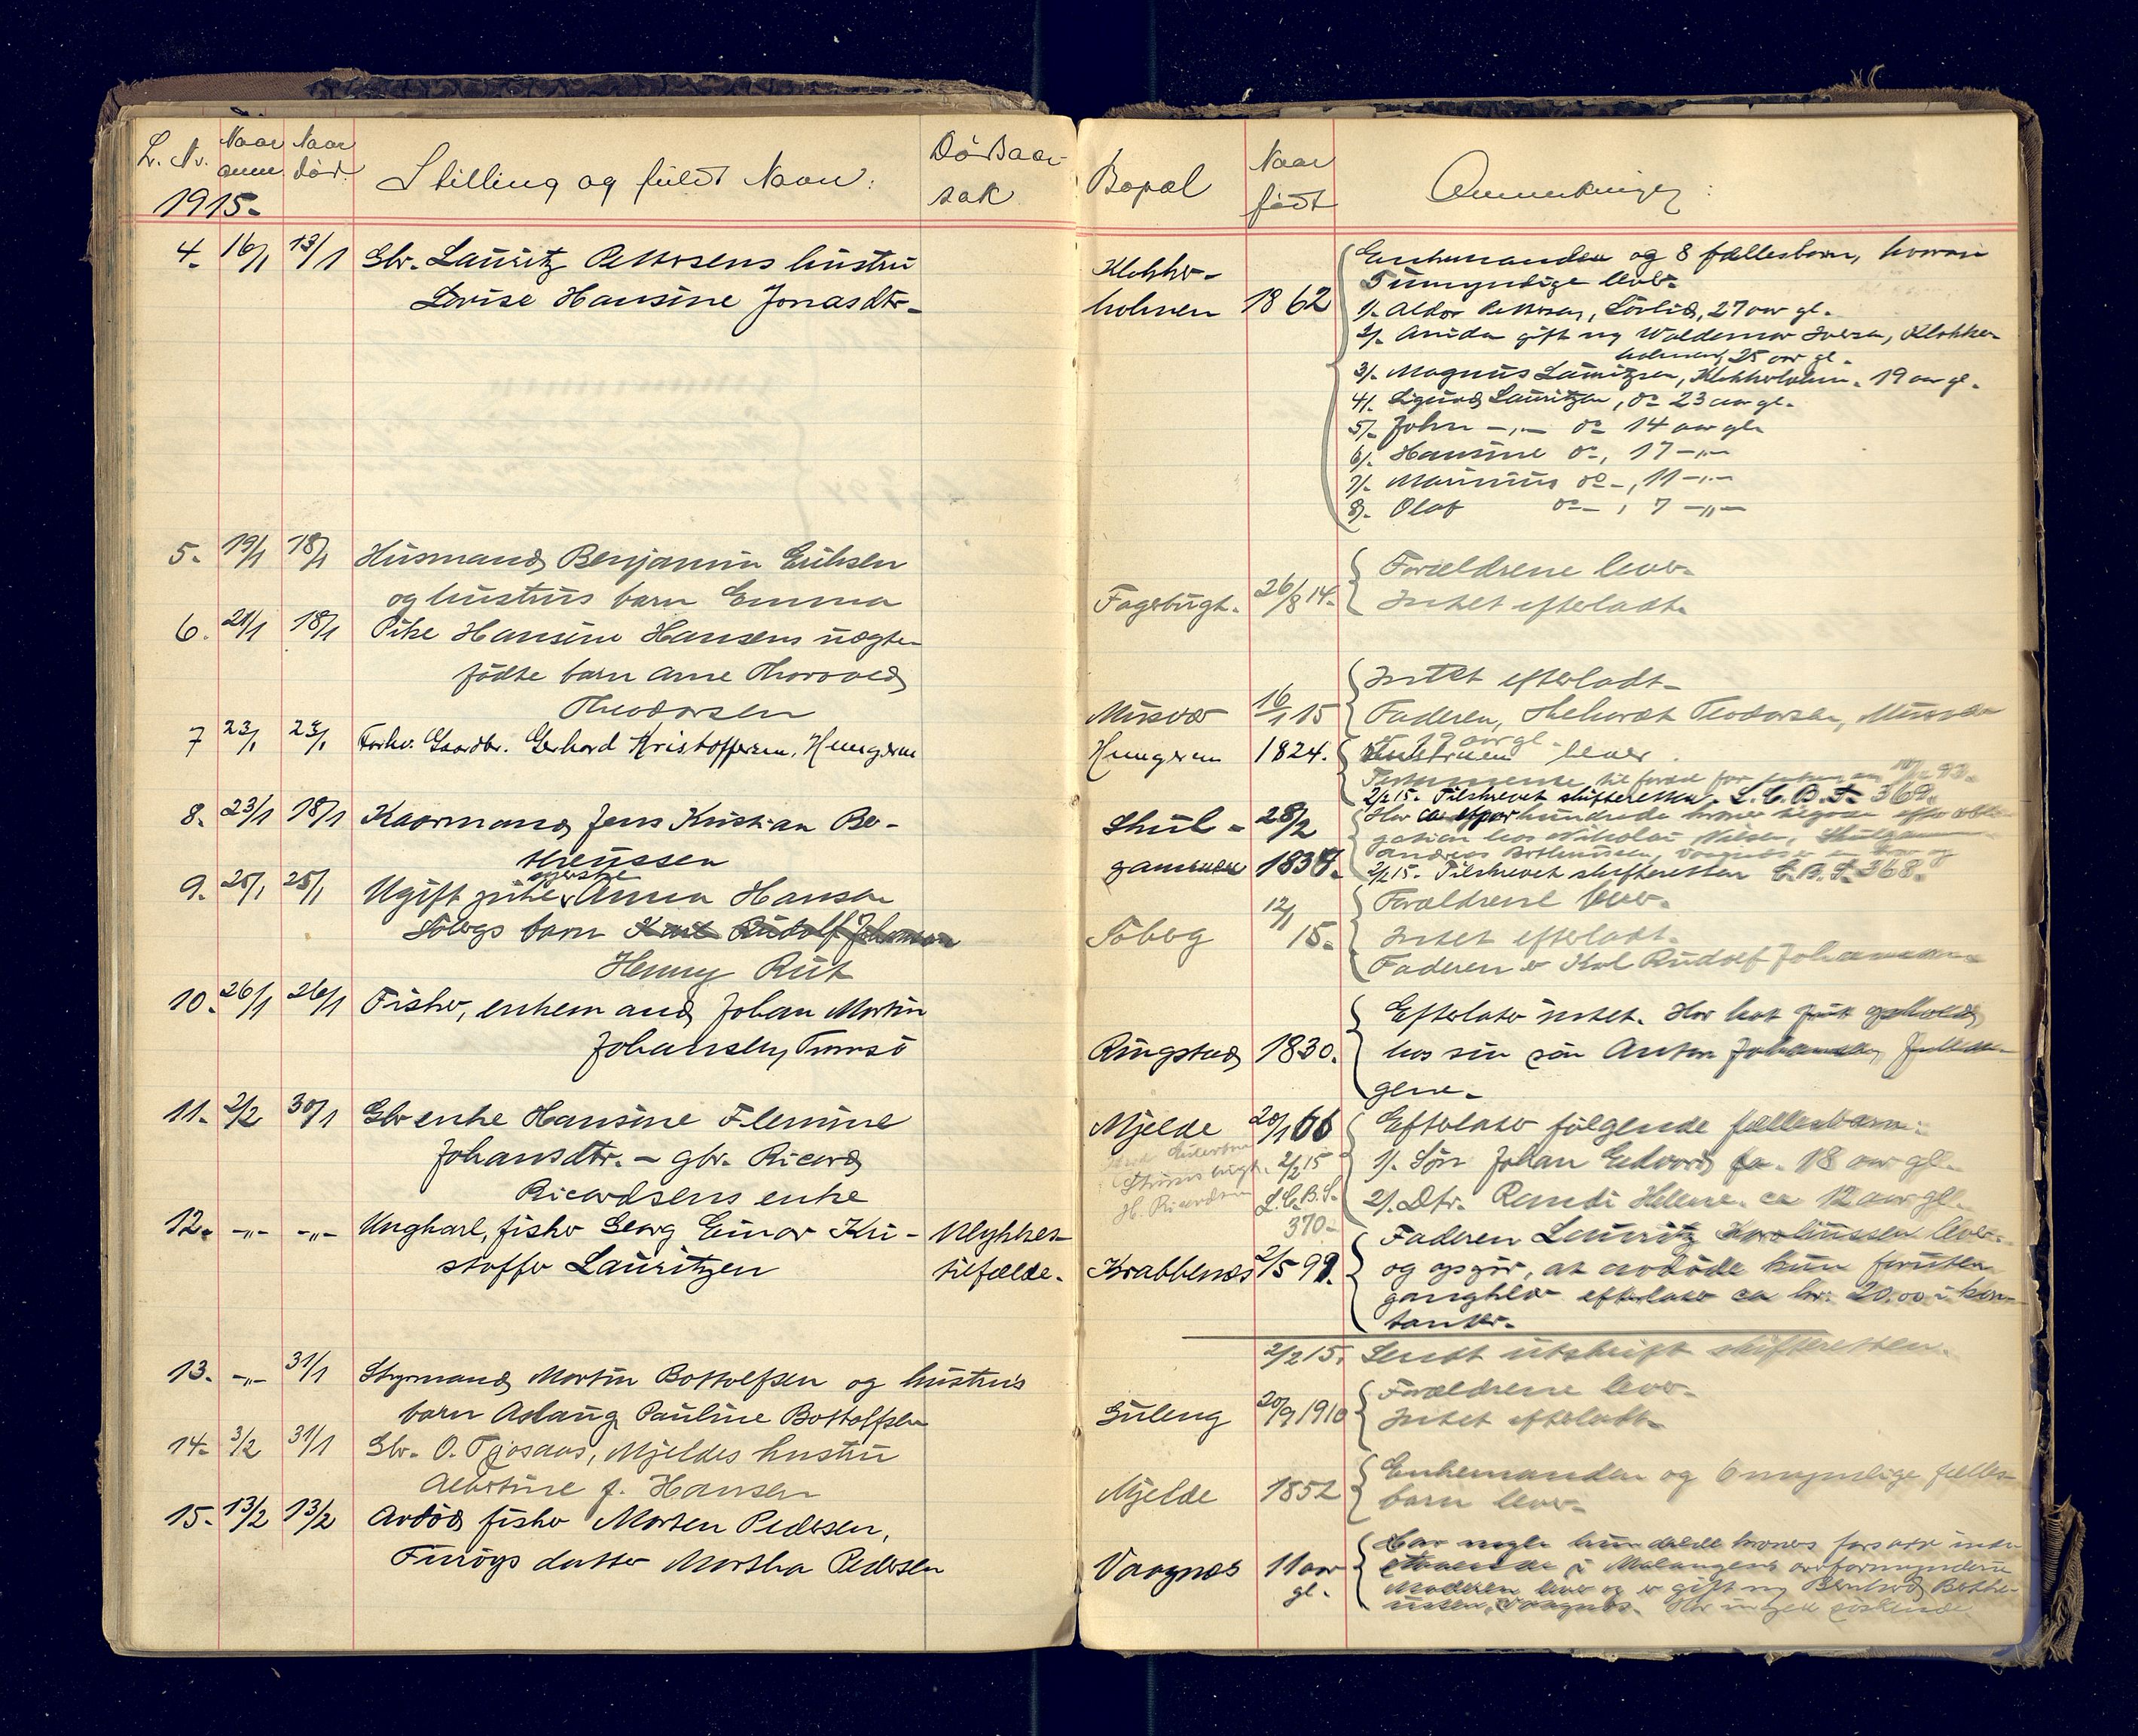 L. Nr. Naar anm. Naar död. Stilling og fuldt Navn: Dödsaar-
sak
1915.
4. 16/1 13/1 Gbr. Lauritz Pettersens hustru
Lovise Hansine Jonasdtr.
5. 19/1 18/1 Husmand Benjamin Eriksen
og hustrus barn Emma
6. 21/1 18/1 Pike Hansine Hansens uægte
födte barn Arne Thorvald
Theodorsen
7 23/1 23/1 Forhv. Gaardbr. Gerhard Kristoffersen, Hungeren
8. 23/1 18/1 Kaarmand Jens Kristian Ber-
theussen
9. 25/1 25/1 Ugift pike Anna Hansen
Tobergs barn Karl Rudolf Johansen
Henny Rut
10. 26/1 26/1 Fisker, enkemand Johan Martin
Johansen, Tromsö
11. 2/2 30/1 Gbr enke Hansine Elemine
Johansdtr. - gbr. Ricard
Ricardsens enke
12. -"- -"- Ungkarl, fisker Georg Einar Kri- Ulykkes-
stoffer Lauritzen tilfælde.
13. -"- 31/1 Styrmand Martin Bottolfsen og hustrus
barn Aslaug Pauline Bottolfsen
14. 3/2 31/1 Gbr. O. Tjosaas, Mjeldes hustru
Albertine f. Hansen
15. 13/2 13/2 Avdöd fisker Morten Pedersen,
Finöys datter Martha Pedersen
Bopæl Naar
födt Anmerkninger:
Klokker-
holmen 1862
Enkemanden og 8 fællesbarn, hvorav
umyndige lever.
1/. Aldor Pettersen, Sörlid, 27 aar gl.
2/. Anida gift m/ Waldemar Iversen, Klokker-
holmen, 25 aar gl.
3/. Magnus Lauritzen, Klokkerholmen. 19 aar gl.
4/. Sigurd Lauritzen, do 23 aar gl.
5/. John -"- do 14 aar gl.
6/. Hansine do, 17 -"-
7/. Marinius do, 11 -"-
8/. Olaf do, 7 -"-
Forældrene lever.
Fagerbugt. 26/8 14. Intet efterladt.
Intet efterladt.
Musvær 16/1 15 Faderen, Teodorsen, Musvær
er 19 aar gl.
Hungeren 1824. Hustruen lever.
2/2 15. Tilskrevet skifteretten. L.C.B.S. 369.
Skul-
gammen 28/2
1838.
Har et par hundrede kroner
hos Nikolai Nilsen, Skulgammen
2/2 15. Tilskrevet skifteretten C.B.S. 368.
Forældrene lever.
Toberg 12/1 15. Intet efterladt.
Faderen er Karl Rudolf Johansen
Efterlater intet. Har hat frit ophold
Ringstad 1830. hos sin sön Anton Johansen,
gene.
Mjelde 20/1 66 Efterlater fölgende fællesbarn:
2/2 15 1/. Sön Johan Edvard ca. 18 aar gl.
H. Ricardsen L.C.B.S. 2/. Dtr. Randi Helene ca 12 aar gl.
370.
Faderen Lauritz Karoliussen lever
Krabbenes 2/5 99. og opgir, at avdöde kun foruten
gangklær efterlater ca kr. 20.00 i kon-
tanter.
2/2 15. Sendt utskrift skifteretten.
Forældrene lever.
Guleng 20/9 1910 Intet efterladt.
Enkemanden og 6 myndige fælles-
Mjelde 1852 barn lever.
Har nogle hundrede kroner
Vaagnes 11 aar
gl. i Malangens overformynderi
Moderen lever og er gift m/ Bernhard Berthe-
ussen, Vaagnes. Har ingen söskende